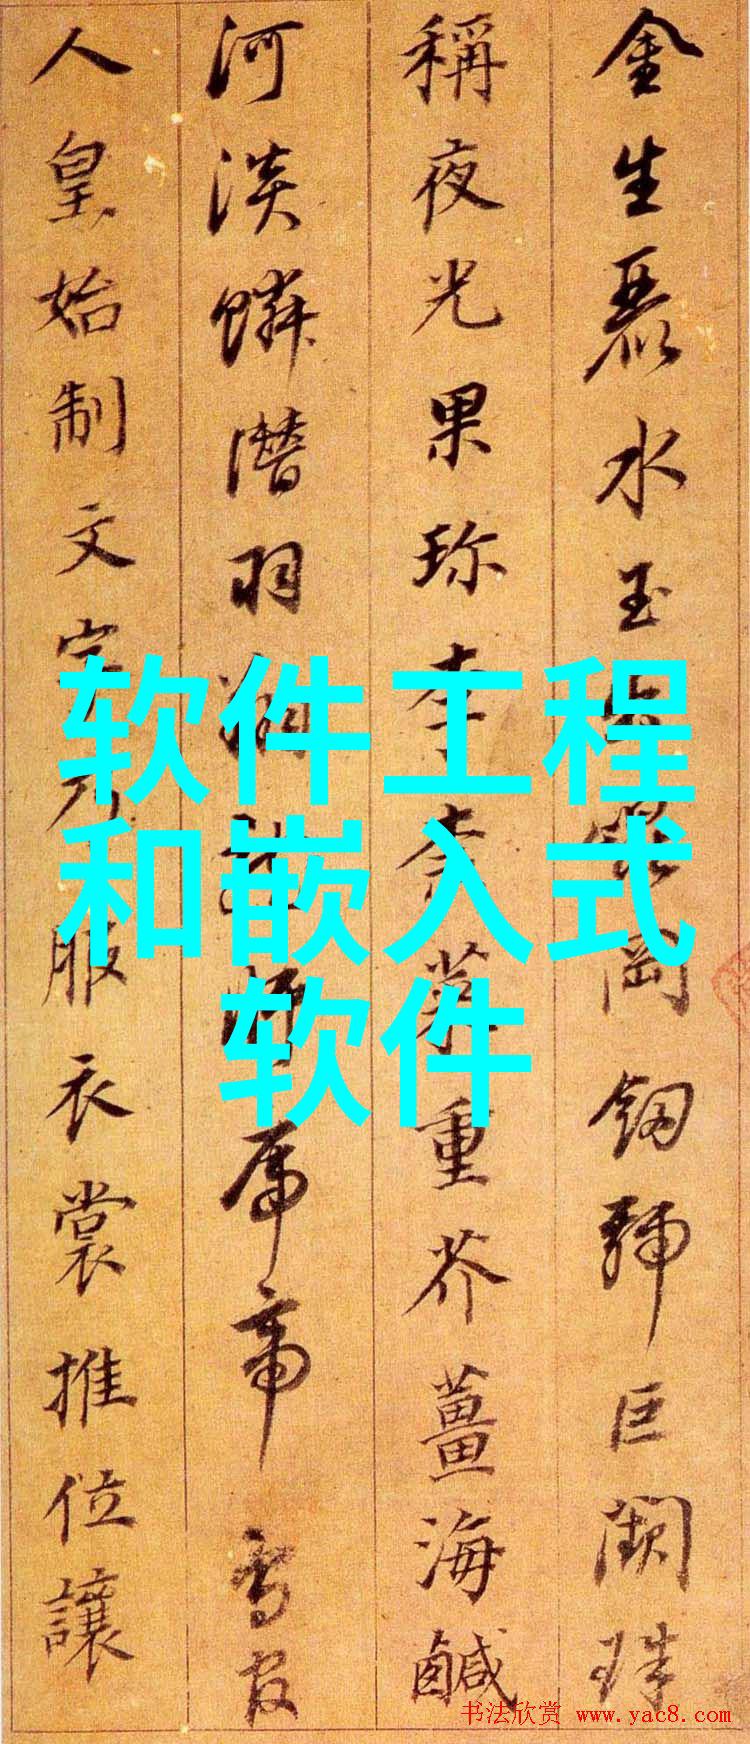 金生麗水玉出崑岡釼號巨闕珠
稱夜光果珍李柰菜重芥薑海鹹
河淡鱗潛羽翔龍師帝鳥官
人皇始制文字乃服衣裳推位讓
软件工程
和嵌入式
软件
书法欣赏 www.yac8.com